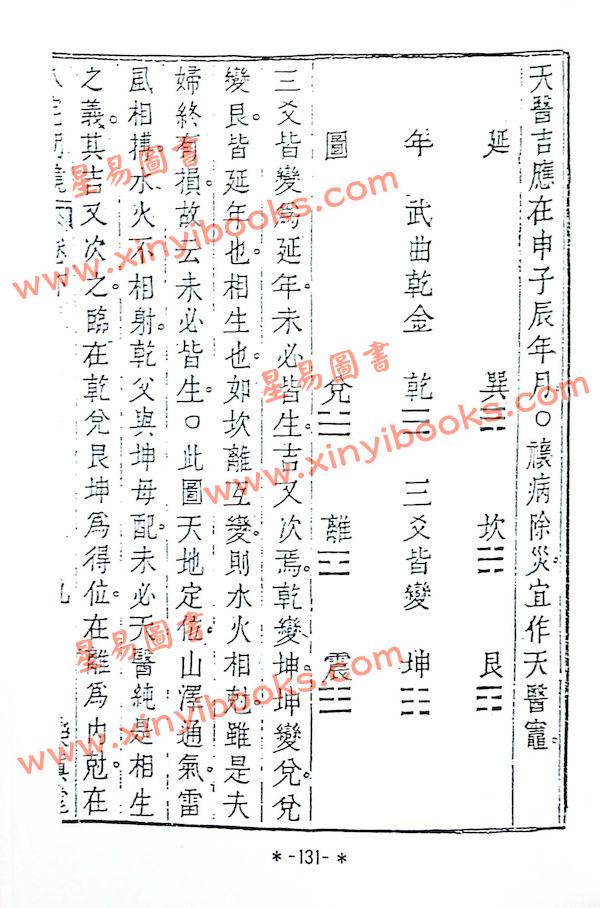 天醫吉應在申子辰年月〇禳病除災宜作天醫竈
延 巽☴ 坎☵ 艮☶
年 武曲乾金 乾☰ 三爻皆變 坤☷
圖 兌☱ 離☲ 震☳
三爻皆變為延年未必皆生吉又次焉乾變坤坤變兌兌
變艮皆延年也相生也如坎離互變則水火相尅雖是夫
婦終有損故云未必皆生〇此圖天地定位山澤通氣雷
風相搏水火不相射乾父與坤母配未必天醫純是相生
之義其吉又次之臨在乾兌艮坤為得位在離為內尅在
星易圖書
www.xinyibooks.com
星易圖書
www.xinyibooks.com
星易圖書
www.xinyibooks.com
*-131-*